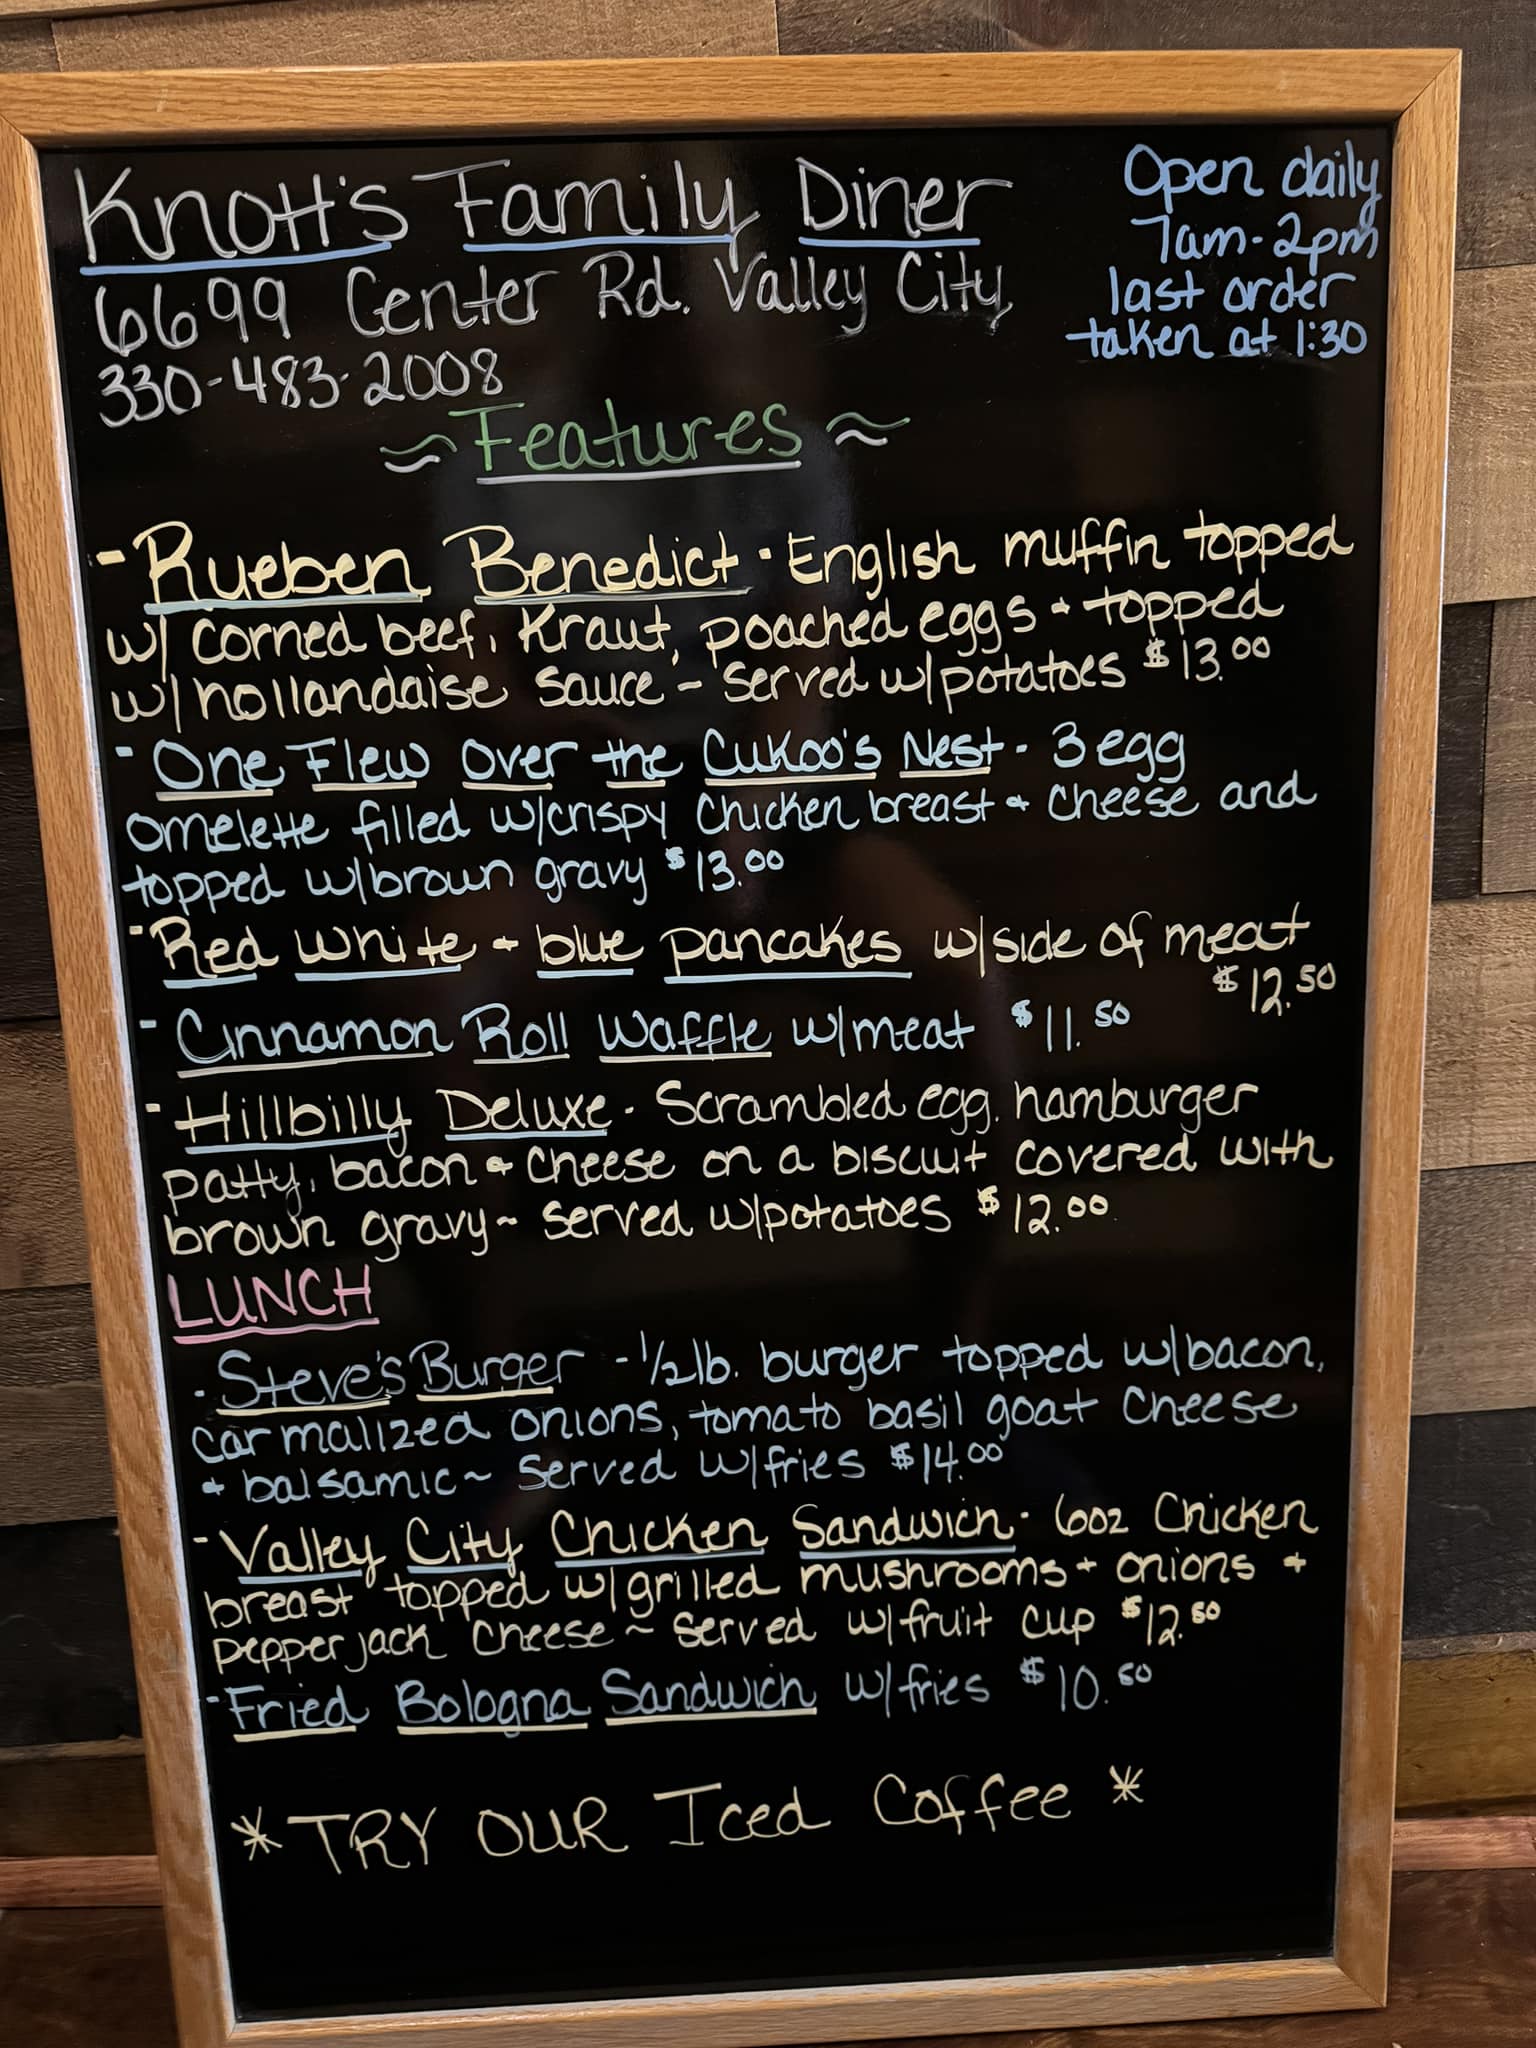 Knott's Family Diner
6699 Center Rd. Valley City
330-483-2008
Open daily
7am-2pm
last order
taken at 1:30
~Features~
- Rueben Benedict - English muffin topped
w/ corned beef, Kraut, poached eggs + topped
w/hollandaise sauce ~ Served w/potatoes $13.00
- One Flew Over the Cukoo's Nest - 3 egg
omelette filled w/crispy Chicken breast + Cheese and
topped w/brown gravy $13.00
- Red White + blue pancakes w/side of meat
$12.50
- Cinnamon Roll Waffle w/meat $11.50
- Hillbilly Deluxe - Scrambled egg, hamburger
patty, bacon + Cheese on a biscuit covered with
brown gravy ~ served w/potatoes $12.00
LUNCH
- Steve's Burger - 1/2 lb. burger topped w/bacon,
carmalized onions, tomato basil goat Cheese
+ balsamic ~ Served w/fries $14.00
- Valley City Chicken Sandwich - 6oz Chicken
breast topped w/grilled mushrooms + onions +
pepper jack Cheese ~ Served w/fruit cup $12.50
- Fried Bologna Sandwich w/fries $10.50
* TRY OUR Iced Coffee *